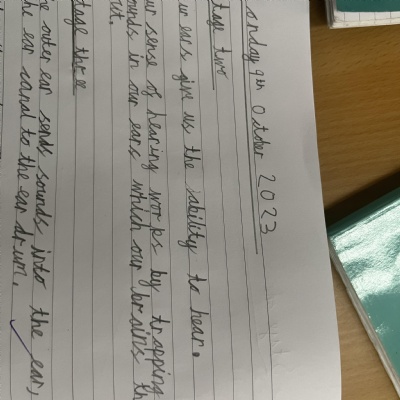 onday 9th October 2023
tage two
ur ears give us the iability to hear.
ur sense of hearing works by trapping
ounds in our ears which our brains th
rt.
tage three
e outer ear sends sounds into the ear,
he ear canal to the ear drum.